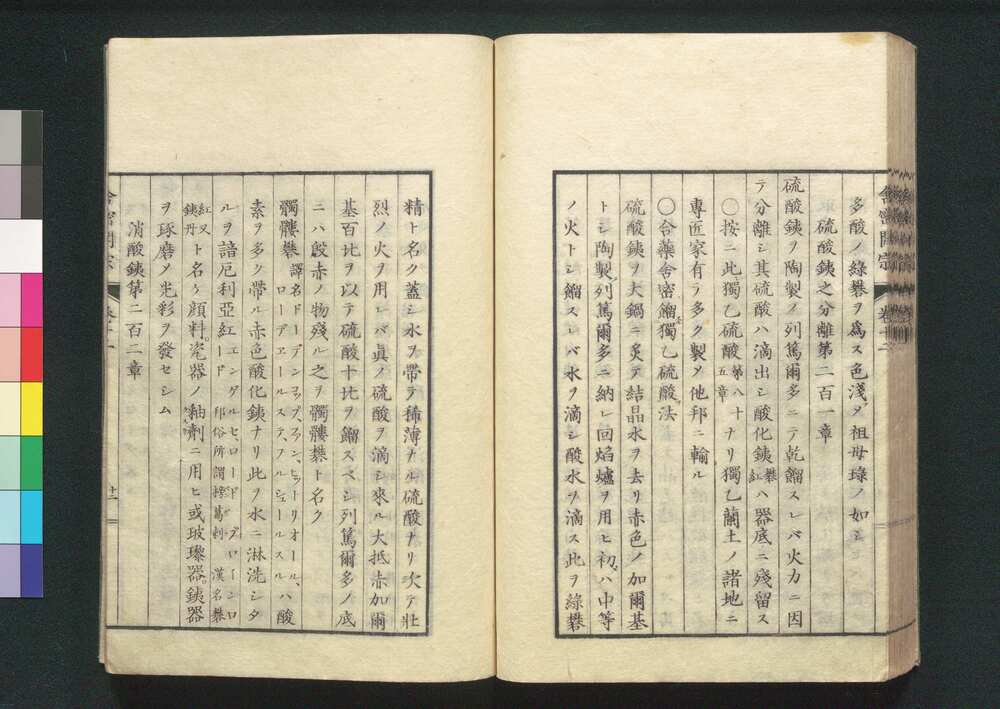 多酸ノ綠礬ヲ爲ス色淺ク祖母綠ノ如シ
硫酸銕之分離第二百一章
硫酸銕ヲ陶製ノ列篤爾多ニテ乾餾スレバ火力ニ因
テ分離シ其硫酸ハ滴出シ酸化銕礬紅ハ器底ニ殘留ス
○按ニ此獨乙硫酸第八十五章ナリ獨乙蘭土ノ諸地ニ
專匠家有テ多ク製メ他邦ニ輸ル
○合藥舍密餾獨乙硫酸法
硫酸銕ヲ大鍋ニ炙テ結晶水ヲ去リ赤色ノ加爾基
トシ陶製列篤爾多ニ納レ回焰爐ヲ用ヒ初ハ中等
ノ火トシ餾スレバ水ヲ滴シ酸水ヲ滴ス此ヲ綠礬
精ト名ク蓋シ水ヲ帶テ稀薄ナル硫酸ナリ次テ壯
烈ノ火ヲ用レバ眞ノ硫酸ヲ滴シ來ル大抵赤加爾
基百比ヲ以テ硫酸十比ヲ餾スベシ列篤爾多ノ底
ニハ殷赤ノ物殘ル之ヲ髑髏礬ト名ク
髑髏礬譯名ドーデンコップ、ファン、ヒトリオール、ローデヱールステ、フルシェールスルハ酸
素ヲ多ク帶ル赤色酸化銕ナリ此ヲ水ニ淋洗シタ
ルヲ諳厄利亞紅エンゲルセ、ロード ブローインロード 邦俗所謂 漢名礬
紅又銕丹ト名ク顔料。瓷器ノ釉劑ニ用ヒ或玻瓈器。銕器
ヲ琢磨メ光彩ヲ發セシム
消酸銕第二百二章
舍密開宗
十一